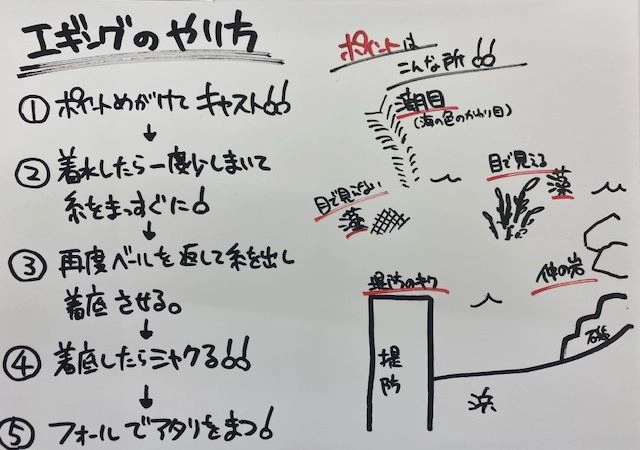 エギングのやり方
① ポイントめがけて キャスト!!
↓
② 着水したら一度少しまいて
糸をまっすぐに!
↓
③ 再度ベールを返して糸を出し
着底させる。
↓
④ 着底したらシャクる!!
↓
⑤ フォールでアタリをまつ!
ポイントは
こんな所!!
潮目
(海の色のかわり目)
目で見える
藻
目で見えない
藻
堤防のキワ
沖の岩
堤防
磯
浜